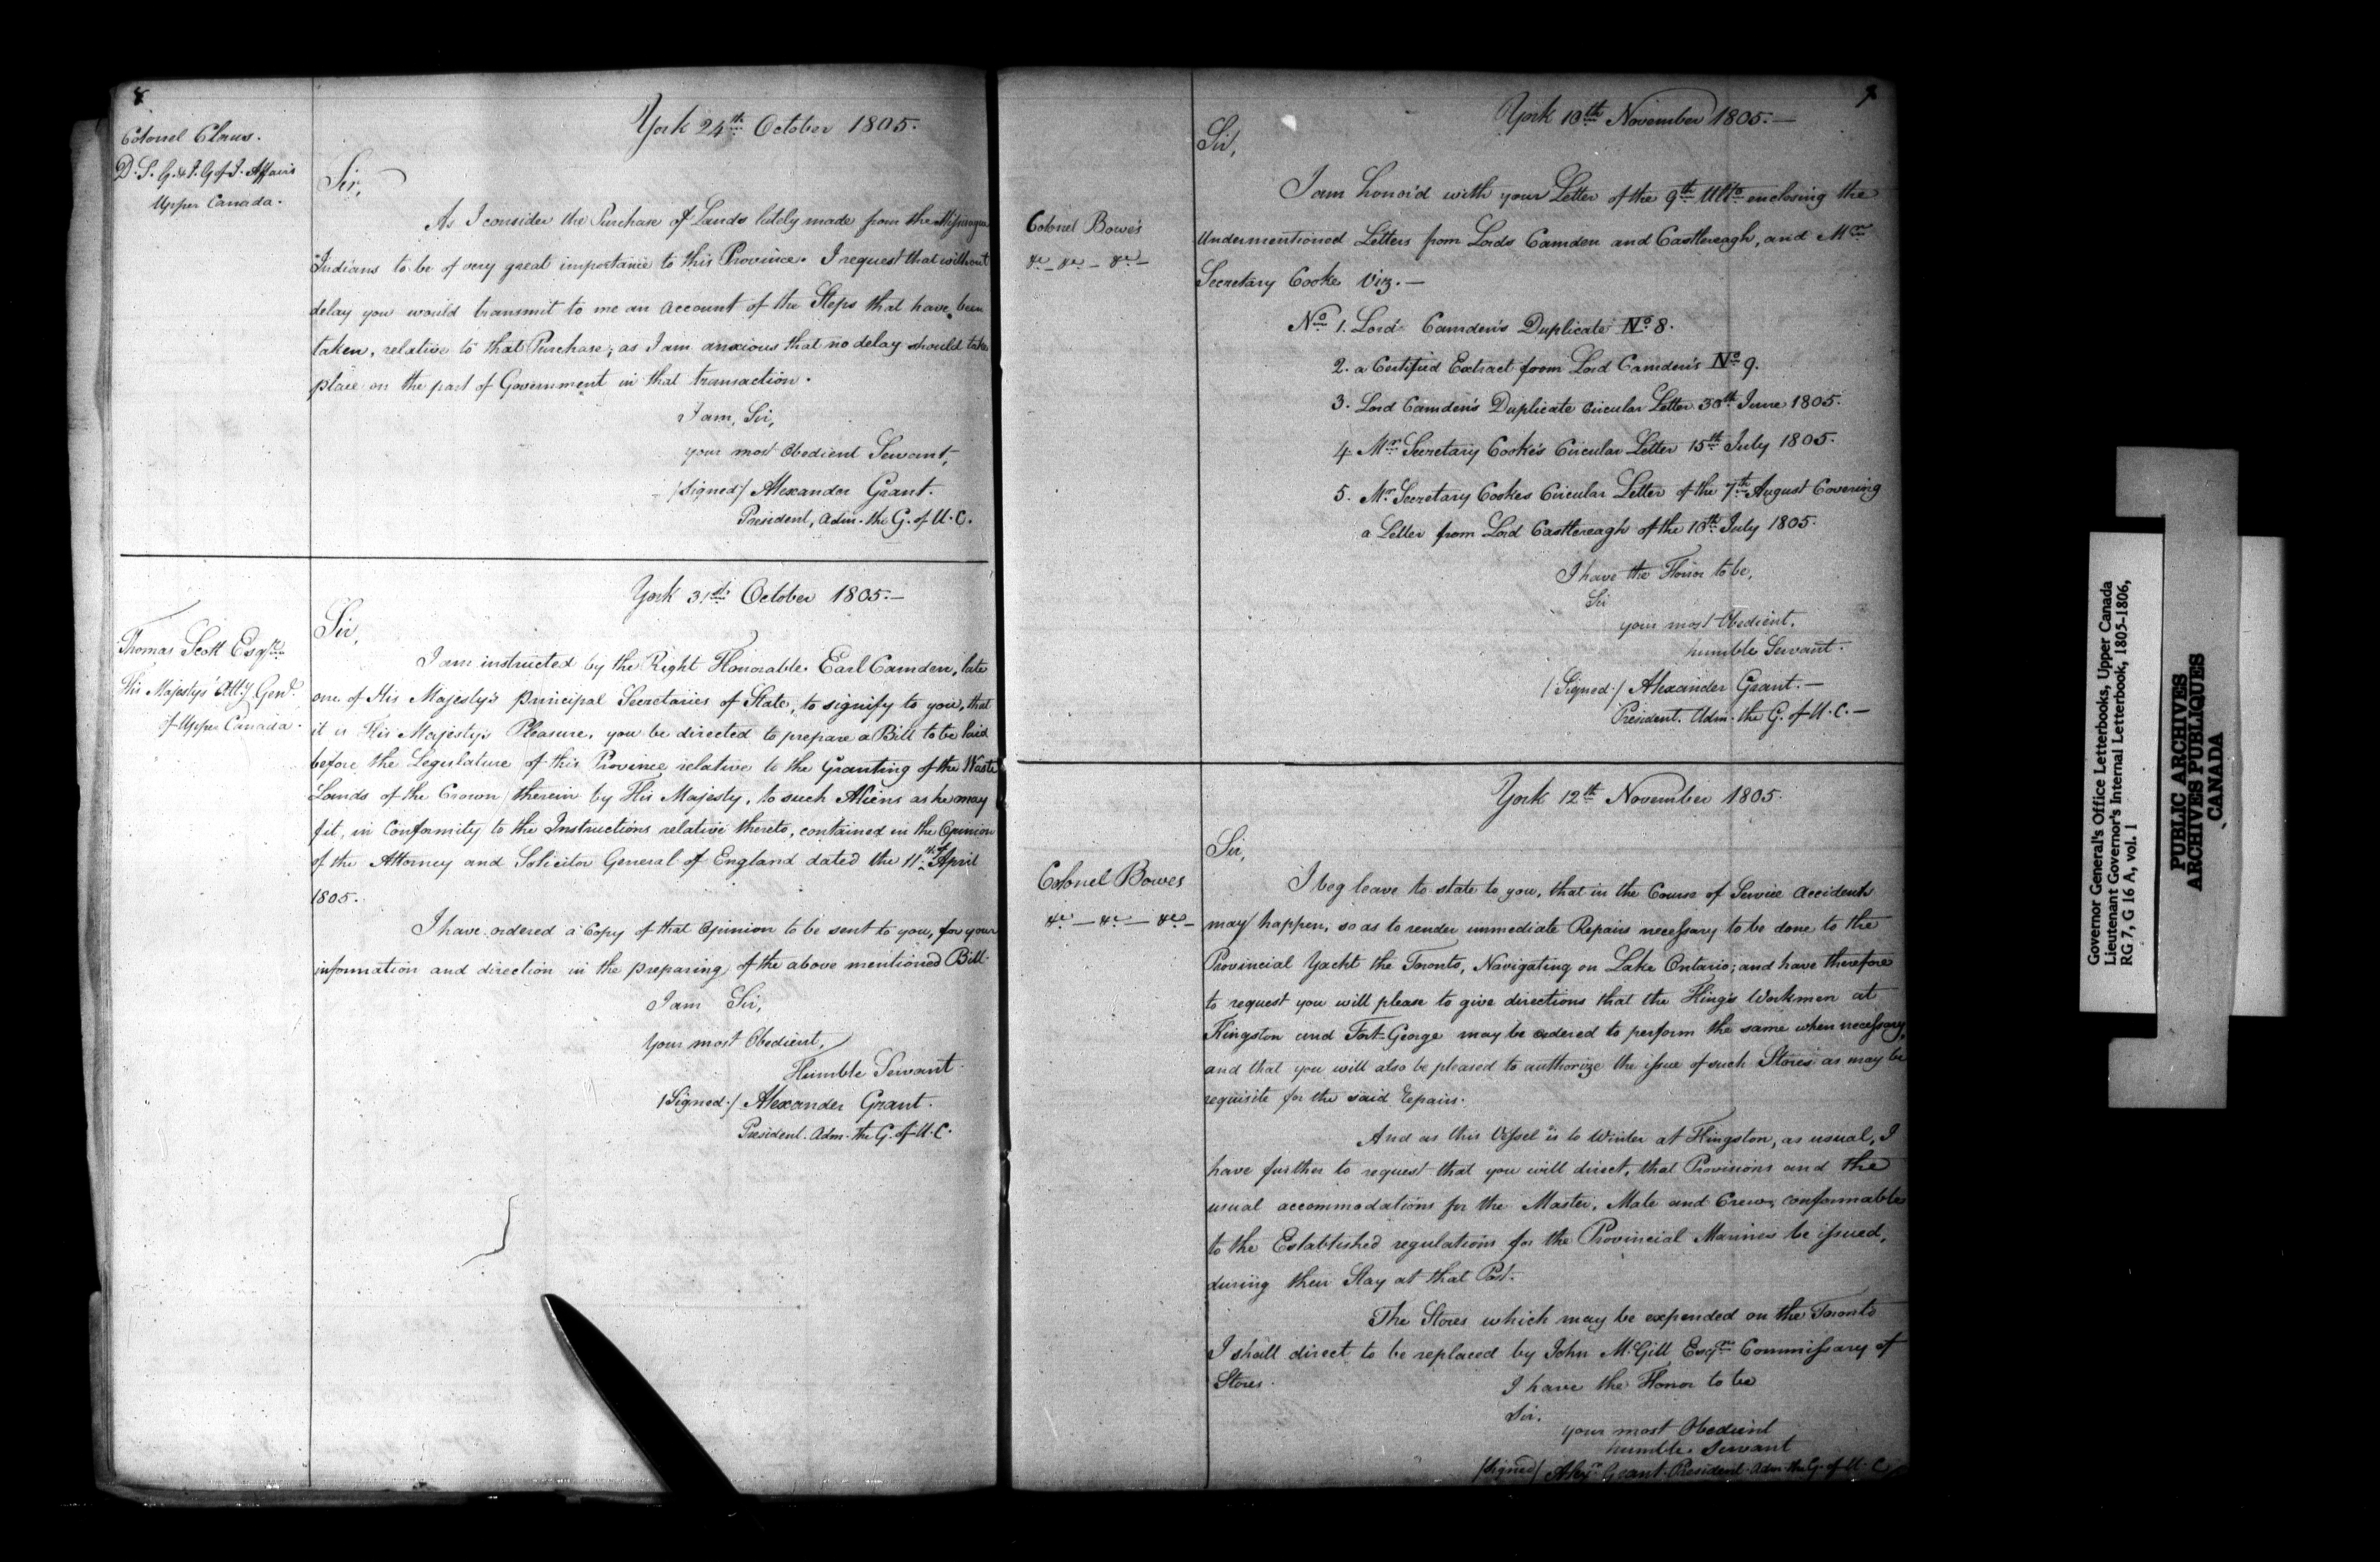 8
York 24th October 1805.
Colonel Claus.
D. S. G. & I. G of I. Affairs
Upper Canada.
Sir,
As I consider the Purchase of Lands lately made from the Missisagua
Indians to be of very great importance to this Province. I request that without
delay you would transmit to me an account of the Steps that have been
taken, relative to that Purchase, as I am anxious that no delay should take
place on the part of Government in that transaction.
I am, Sir,
your most Obedient Servant,
/Signed/ Alexander Grant.
President, Adm. the G. of U. C.
York 31st October 1805.—
Thomas Scott Esqre
His Majestys' Atty Genl
of Upper Canada.
Sir,
I am instructed by the Right Honorable Earl Camden, late
one of His Majesty's principal Secretaries of State, to signify to you, that
it is His Majesty's Pleasure, you be directed to prepare a Bill to be laid
before the Legislature of this Province relative to the Granting of the Waste
Lands of the Crown therein by His Majesty, to such Aliens as he may
fit, in Conformity to the Instructions relative thereto, contained in the Opinion
of the Attorney and Solicitor General of England dated the 11th of April
1805.
I have ordered a Copy of that Opinion to be sent to you, for your
information and direction in the preparing of the above mentioned Bill.
I am Sir,
Your most Obedient,
Humble Servant.
/Signed./ Alexander Grant.
President. Adm. the G. of U. C.
9
York 10th November 1805.—
Sir,
Colonel Bowes
&c — &c — &c —
I am honor'd with your Letter of the 9th Ulto enclosing the
Undermentioned Letters from Lords Camden and Castlereagh, and Mr
Secretary Cooke Viz.—
No 1. Lord Camden's Duplicate No 8.
2. a Certified Extract from Lord Camden's No 9.
3. Lord Camden's Duplicate Circular Letter 30th June 1805.
4. Mr Secretary Cooke's Circular Letter 15th July 1805.
5. Mr Secretary Cookes Circular Letter of the 7th August Covering
a Letter from Lord Castlereagh of the 10th July 1805.
I have the Honor to be,
Sir
your most Obedient,
humble Servant.
/Signed./ Alexander Grant.—
President. Adm. the G. of U. C.—
York 12th November 1805.
Sir,
Colonel Bowes
&c — &c — &c —
I beg leave to state to you, that in the Course of Service Accidents
may happen, so as to render immediate Repairs necessary to be done to the
Provincial Yacht the Toronto, Navigating on Lake Ontario; and have therefore
to request you will please to give directions that the King's Workmen at
Kingston and Fort-George may be ordered to perform the same when necessary,
and that you will also be pleased to authorize the issue of such Stores as may be
requisite for the said Repairs.
And as this Vessel is to Winter at Kingston, as usual, I
have further to request that you will direct, that Provisions and the
usual accommodations for the Master, Mate and Crew, conformable
to the Established regulations for the Provincial Marine be issued,
during their Stay at that Post.
The Stores which may be expended on the Toronto
I shall direct to be replaced by John McGill Esqre Commissary of
Stores.
I have the Honor to be
Sir.
your most Obedient
humble Servant
/Signed/ Alexr Grant. President. Adm. the G. of U. C.
Governor General's Office Letterbooks, Upper Canada
Lieutenant Governor's Internal Letterbook, 1805-1806,
RG 7, G 16 A, vol. 1
PUBLIC ARCHIVES
ARCHIVES PUBLIQUES
CANADA